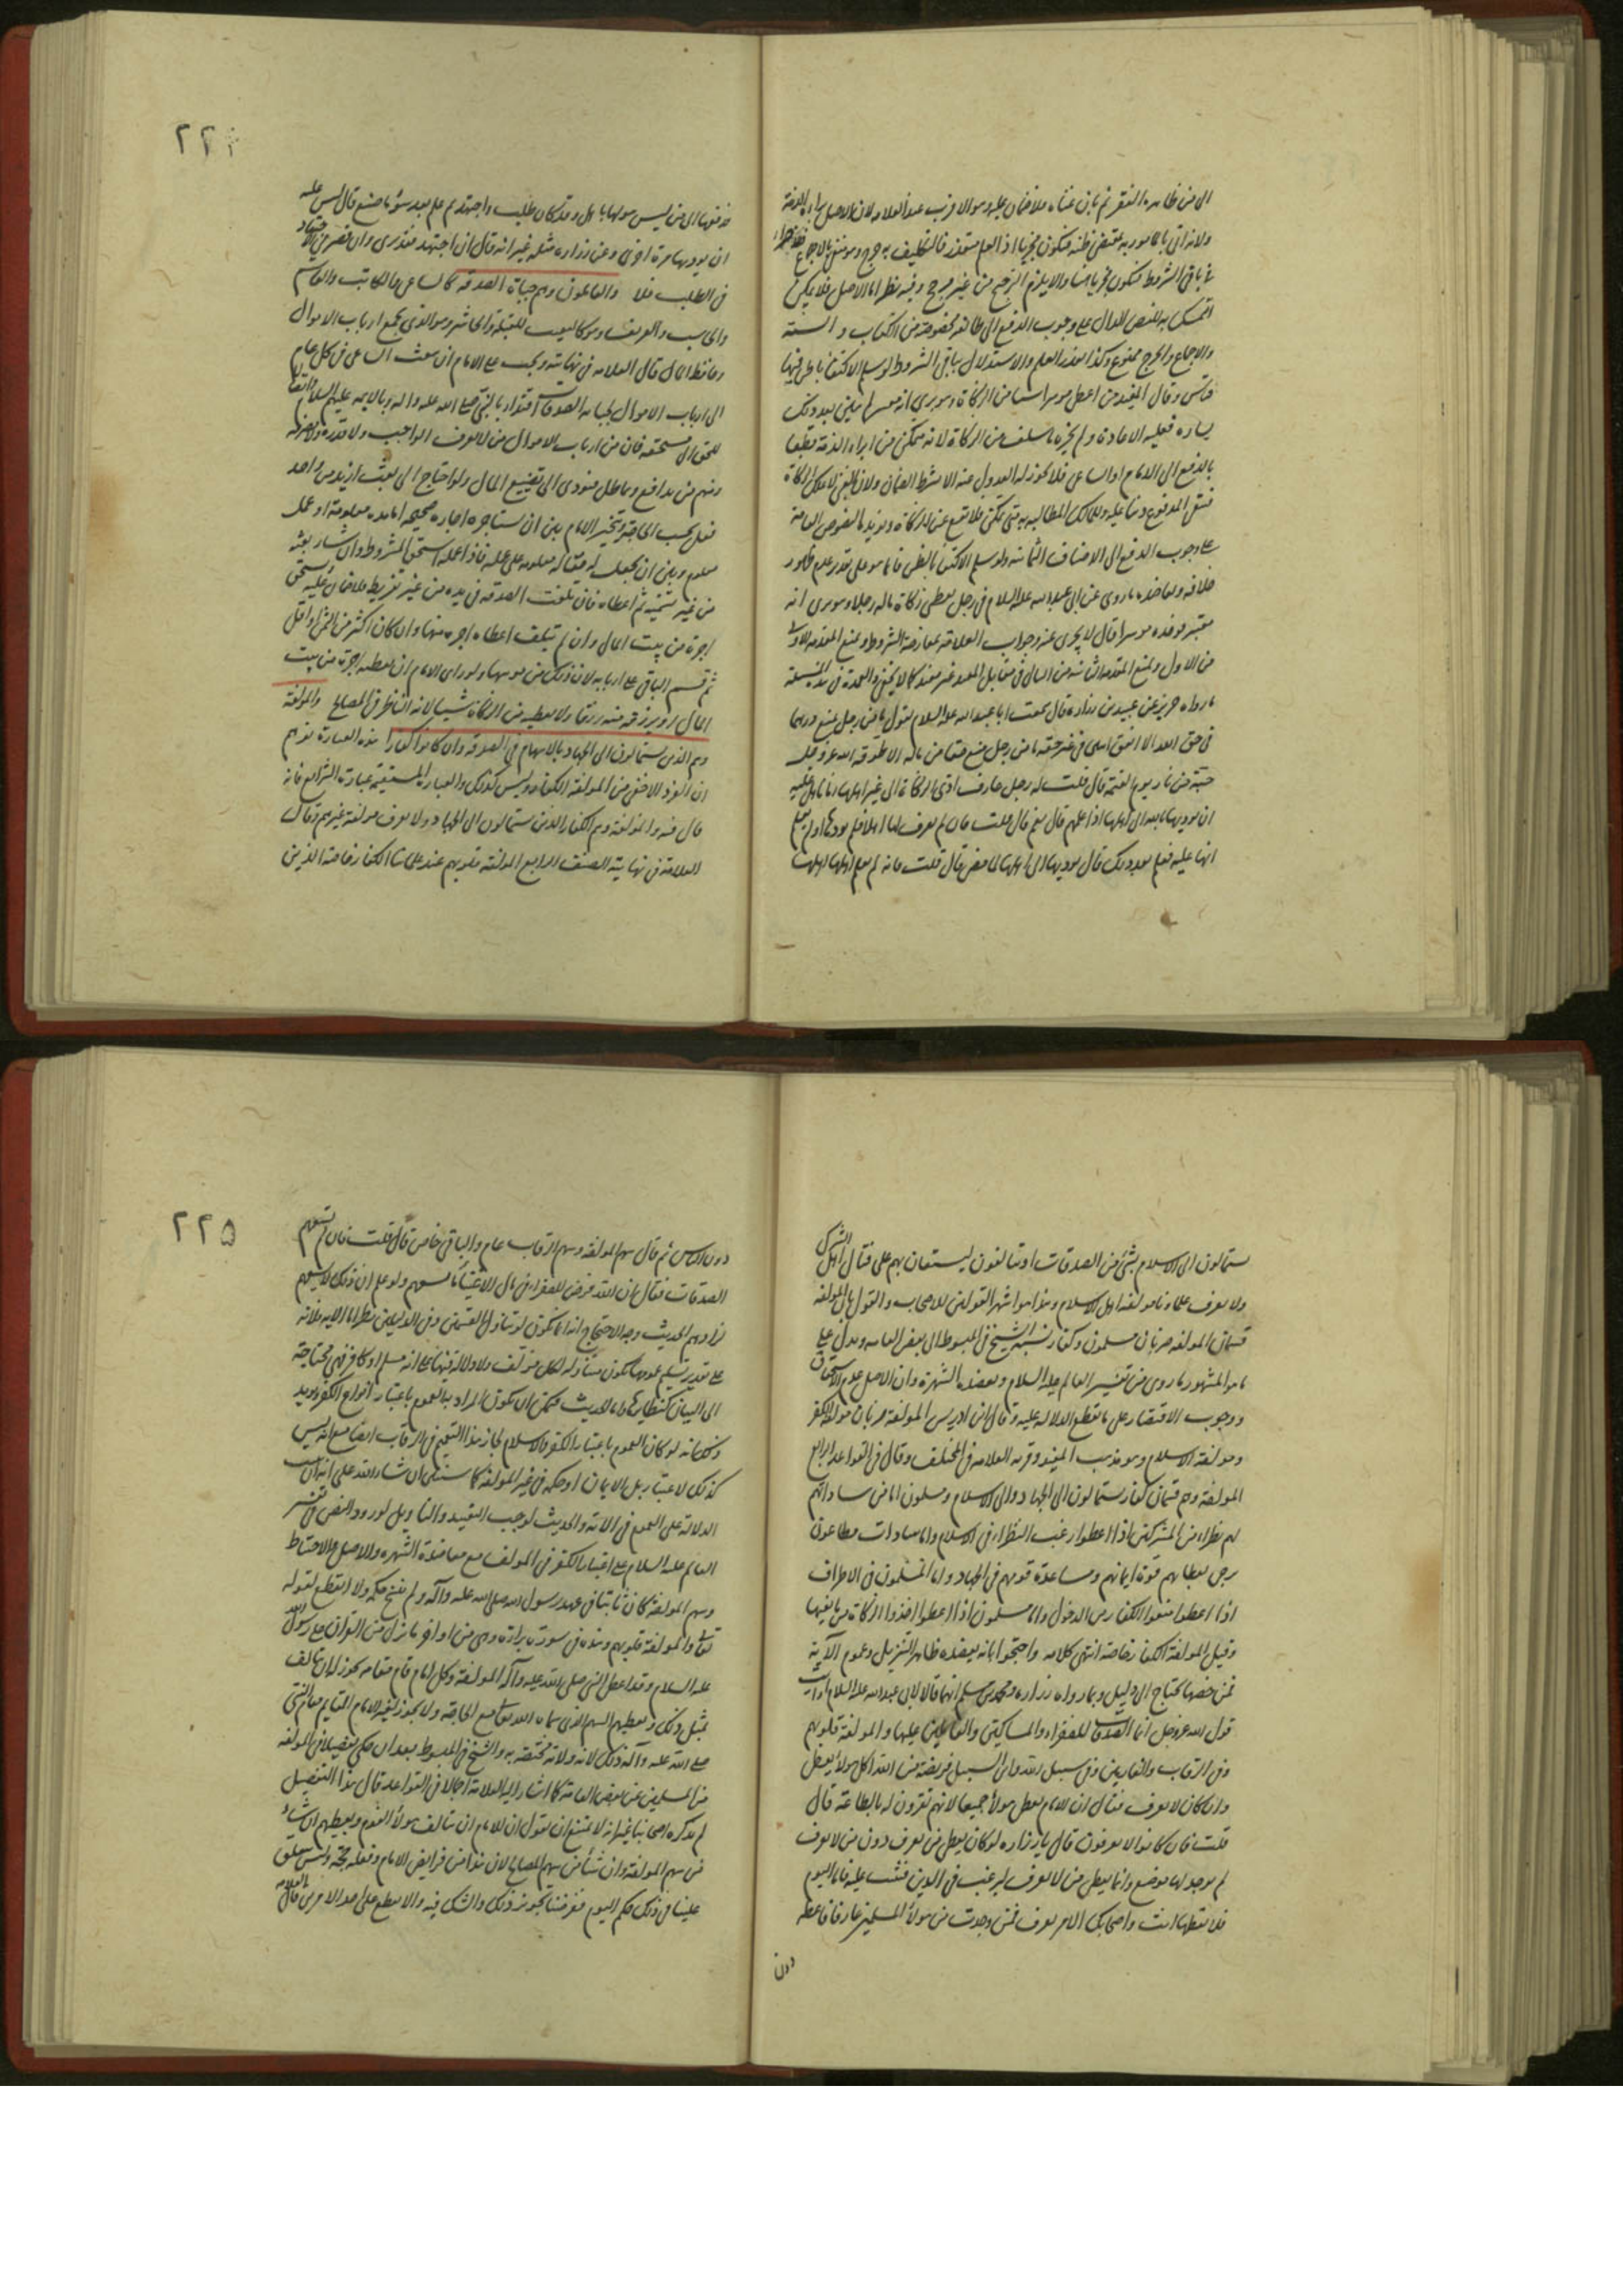 الى من ظاهره الفقر ثم بان غناه فلا ضمان عليه وهو الاقرب عند العلامه لان الاصل براءة الذمة
ولانه اتى بالمامور به بمقتضى ظنه فيكون مجزيا اذ العلم متعذر فالتكليف به حرج وهو منفى بالاجماع
باقى الشروط فيكون مجزيا هنا والا يلزم الترجيح من غير مرجح وفيه نظر اما الاصل فلا يمكن
التمسك به للنص الدال على وجوب الدفع الى طائفة مخصوصة من الكتاب والسنة
والاجماع والحرج ممنوع وكذا تعذر العلم والاستدلال بباقى الشروط لو سلم الاكتفا بالظن فيها
قياس وقال المفيد من اعطى موسرا شيئا من الزكاة وهو يرى انه معسر ثم تبين بعد ذلك
يساره فعليه الاعادة ولم يجزه ما سلف من الزكاة لانه متمكن من ابراء الذمة قطعا
بالدفع الى الامام او الساعى فلا يجوز له العدول عنه الا بشرط الضمان ولان الغنى لا يملك الزكاة
على وجوب الدفع الى الاصناف الثمانية ولو سلم الاكتفا بالظن فانما هو على تقدير عدم ظهور
خلافه ويعاضده ما روى عن ابى عبدالله عليه السلام فى رجل يعطى زكاة ماله رجلا وهو يرى انه
معسر فوجده موسرا قال لا يجزى عنه وجواب العلامه بمعارضة الشروط وبمنع المقدمة الاولى
ما رواه حريز عن عبيد بن زراره قال سمعت ابا عبدالله عليه السلام يقول ما من رجل يمنع درهما
فى حق الله الا انفق اثنين فى غير حقه ما من رجل منع حقا من ماله الا طوقه الله عز وجل
حية من نار يوم القيمة قال قلت له رجل عارف ادى الزكاة الى غير اهلها زمانا هل عليه
ان يؤديها ثانيا الى اهلها اذا علمهم قال نعم قال قلت فان لم يعرف لها اهلا فلم يؤدها او لم يعلم
انها عليه فعلم بعد ذلك قال يؤديها الى اهلها لما مضى قال قلت فانه لم يعلم اهلها
٢٢٤
فدفعها الى من ليس هو لها باهل وقد كان طلب واجتهد ثم علم بعد سوء ما صنع قال ليس عليه
ان يؤديها مرة اخرى وعن زراره مثله غير انه قال ان اجتهد فقد برى وان قصر فى الاجتهاد
فى الطلب فلا والعاملون وهم جباة الصدقه كالساعى والكاتب والقاسم
والحاسب والعريف وهو كالنقيب للقبيلة والحاشر وهو الذى يجمع ارباب الاموال
وحافظ المال قال العلامه فى نهايته ويجب على الامام ان يبعث الساعى فى كل عام
الى ارباب الاموال لجباية الصدقات اقتداء بالنبى صلى الله عليه واله وبالايمه عليهم السلام
للحق الى مستحقه فان من ارباب الاموال من لا يعرف الواجب
ومنهم من يدافع ويماطل فيؤدى الى تضييع المال ولو احتاج الى بعث ازيد من واحد
فعل بحسب الحاجة ويتخير الامام بين ان يستاجره اجارة صحيحه اما مدة معلومة او عمل
معلوم وبين ان يجعل له جعالة معلومه على عمله فاذا عمله استحق المشروط وان شاء بعثه
من غير تسمية ثم اعطاه فان تلفت الصدقه فى يده من غير تفريط فلا ضمان عليه ويستحق
اجرة من بيت المال وان لم تتلف اعطاه اجره منها وان كان اكثر من الثمن او اقل
ثم قسم الباقى على اربابه لان ذلك من مؤنتها ولو راى الامام ان يعطيه اجرة من بيت
المال او يرزقه منه رزقا ولا يعطيه من الزكاة شيئا لانه الناظر فى المصالح والمولفة
وهم الذين يستمالون الى الجهاد بالاسهام فى الصدقه وان كانوا كفارا هذه العبارة توهم
ان الفرد الاخفى من المولفة الكفار وليس كذلك والعبارة المستقيمة عبارة الشرائع فانه
قال فيه والمولفة وهم الكفار الذين يستمالون الى الجهاد ولا يعرف مولفة غيرهم وقال
العلامة فى نهايته الصنف الرابع المولفة قلوبهم عند علمائنا الكفار خاصة الذين
يستمالون الى الاسلام بشئ من الصدقات او يتالفون ليستعان بهم على قتال اهل الشرك
ولا يعرف علماؤنا مولفة اهل الاسلام وهذا هو اشهر القولين للاصحاب والقول بان المولفه
قسمان المولفه ضربان مسلمون وكفار نسبه الشيخ فى المبسوط الى بعض العامه ويدل على
ما هو المشهور ما روى من تفسير العالم عليه السلام ويعضده الشهرة وان الاصل عدم الاستحقاق
ووجوب الاقتصار على ما قطع الدلاله عليه وقال ابن ادريس المولفة ضربان مولفة الكفر
ومولفة الاسلام وهو مذهب المفيد وقربه العلامه فى المختلف وقال فى القواعد الرابع
المولفة وهم قسمان كفار يستمالون الى الجهاد والى الاسلام ومسلمون اما من ساداتهم
لهم نظراء من المشركين اذا اعطوا رغب النظراء فى الاسلام واما سادات مطاعون
يرجى بعطائهم قوة ايمانهم ومساعدة قومهم فى الجهاد واما مسلمون فى الاطراف
اذا اعطوا منعوا الكفار من الدخول واما مسلمون اذا اعطوا اخذوا الزكاة من مانعيها
وقيل المولفة الكفار خاصة انتهى كلامه واحتجوا بانه يعضده ظاهر التنزيل وعموم الآية
فمن خصها يحتاج الى دليل وبما رواه زراره ومحمد بن مسلم انهما قالا لابى عبدالله عليه السلام ارايت
قول الله عز وجل انما الصدقات للفقراء والمساكين والعاملين عليها والمولفة قلوبهم
وفى الرقاب والغارمين وفى سبيل الله وابن السبيل فريضة من الله اكل هؤلاء يعطى
وان كان لا يعرف فقال ان الامام يعطى هولاء جميعا لانهم يقرون له بالطاعة قال
قلت فان كانوا لا يعرفون قال يا زراره لو كان يعطى من يعرف دون من لا يعرف
لم يوجد لها موضع وانما يعطى من لا يعرف ليرغب فى الدين فيثبت عليه فاما اليوم
فلا تعطها انت واصحابك الا من يعرف فمن وجدت من هولاء المسلمين عارفا فاعطه
دون
٢٢٥
دون الناس ثم قال سهم المولفه وسهم الرقاب عام والباقى خاص قال قلت فان لم تسعهم
الصدقات فقال ان الله فرض للفقراء فى مال الاغنياء ما يسعهم ولو علم ان ذلك لا يسعهم
لزادهم الحديث وجه الاحتجاج انه انما يكون لو تناول القسمين وفى الدليلين نظر اما الايه فلانه
على تقدير تسليم عمومها يكون متناوله لكل مؤلف ولا دلالة فيها على انه مسلم او كافر فهى محتاجة
الى البيان كنظايرها واما الحديث فيمكن ان يكون المراد بالعموم باعتبار انواع الكفر ويؤيد
ذلك انه لو كان العموم باعتبار الكفر والاسلام لجاز هذا التعميم فى الرقاب ايضا مع انه ليس
كذلك لاعتبار بل الايمان او حكمه فى غير المولفة كما سنبين ان شاء الله على انه ان
الدلالة على العموم فى الاية والحديث لوجب التقييد والتاويل لورود النص فى تفسير
العالم عليه السلام على اعتبار الكفر فى المولف مع معاضدة الشهره والاصل والاحتياط
وسهم المولفة كان ثابتا فى عهد رسول الله صلى الله عليه وآله ولم ينسخ حكمه ولا انقطع لقوله
تعالى والمولفة قلوبهم وهذه فى سورة براءة وهى من اواخر ما نزل من القرآن على رسول الله
عليه السلام وقد اعطى النبى صلى الله عليه وآله المولفة وكل امام قام مقامه يجوز له ان يتالف
بمثل ذلك ويعطيهم السهم الذى سماه الله تعالى مع الحاجة ولا يجوز لغير الامام القايم مقام النبى
صلى الله عليه وآله ذلك لانه ولاية مختصة به والشيخ فى المبسوط بعد ان حكى تفصيلا فى المولفة
من المسلمين عن بعض العامة كما اشار اليه العلامة اجمالا فى القواعد قال هذا التفصيل
لم يذكره اصحابنا غير انه لا يمتنع ان نقول ان للامام ان يتالف هولاء القوم ويعطيهم ان شاء
من سهم المولفة وان شاء من سهم المصالح لان هذا من فرايض الامام وفعله حجة وليس يتعلق
علينا فى ذلك حكم اليوم ففرضنا تجويز ذلك والشك فيه ولا نقطع على احد الامرين